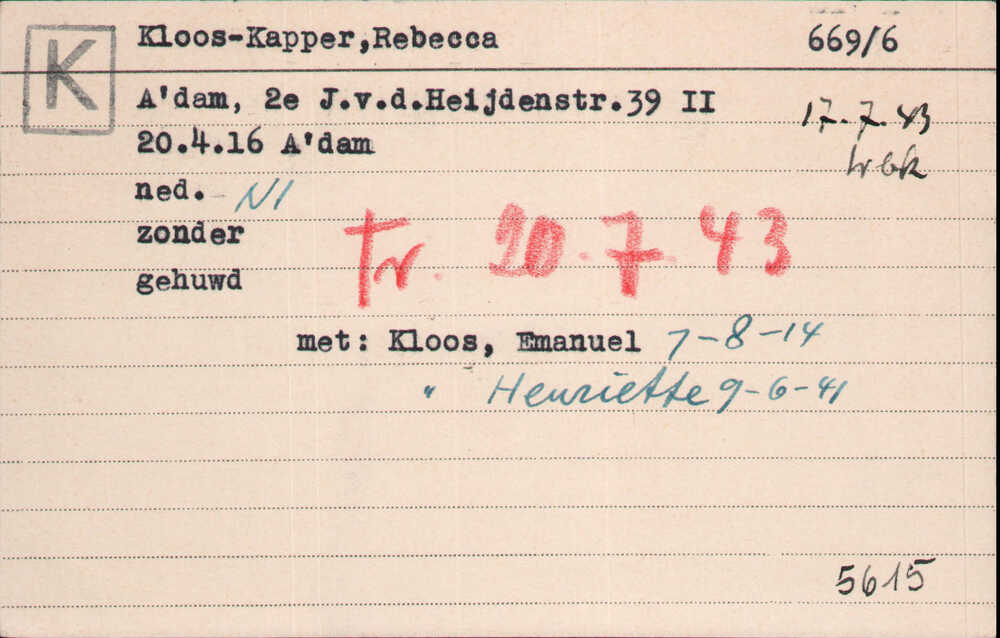 K
Kloos-Kapper,Rebecca 669/6
A'dam, 2e J.v.d.Heijdenstr.39 II
17.7.43
20.4.16 A'dam
wbk
ned. NI
zonder
Tr. 20.7.43
gehuwd
met: Kloos, Emanuel 7-8-14
" Henriette 9-6-41
5615